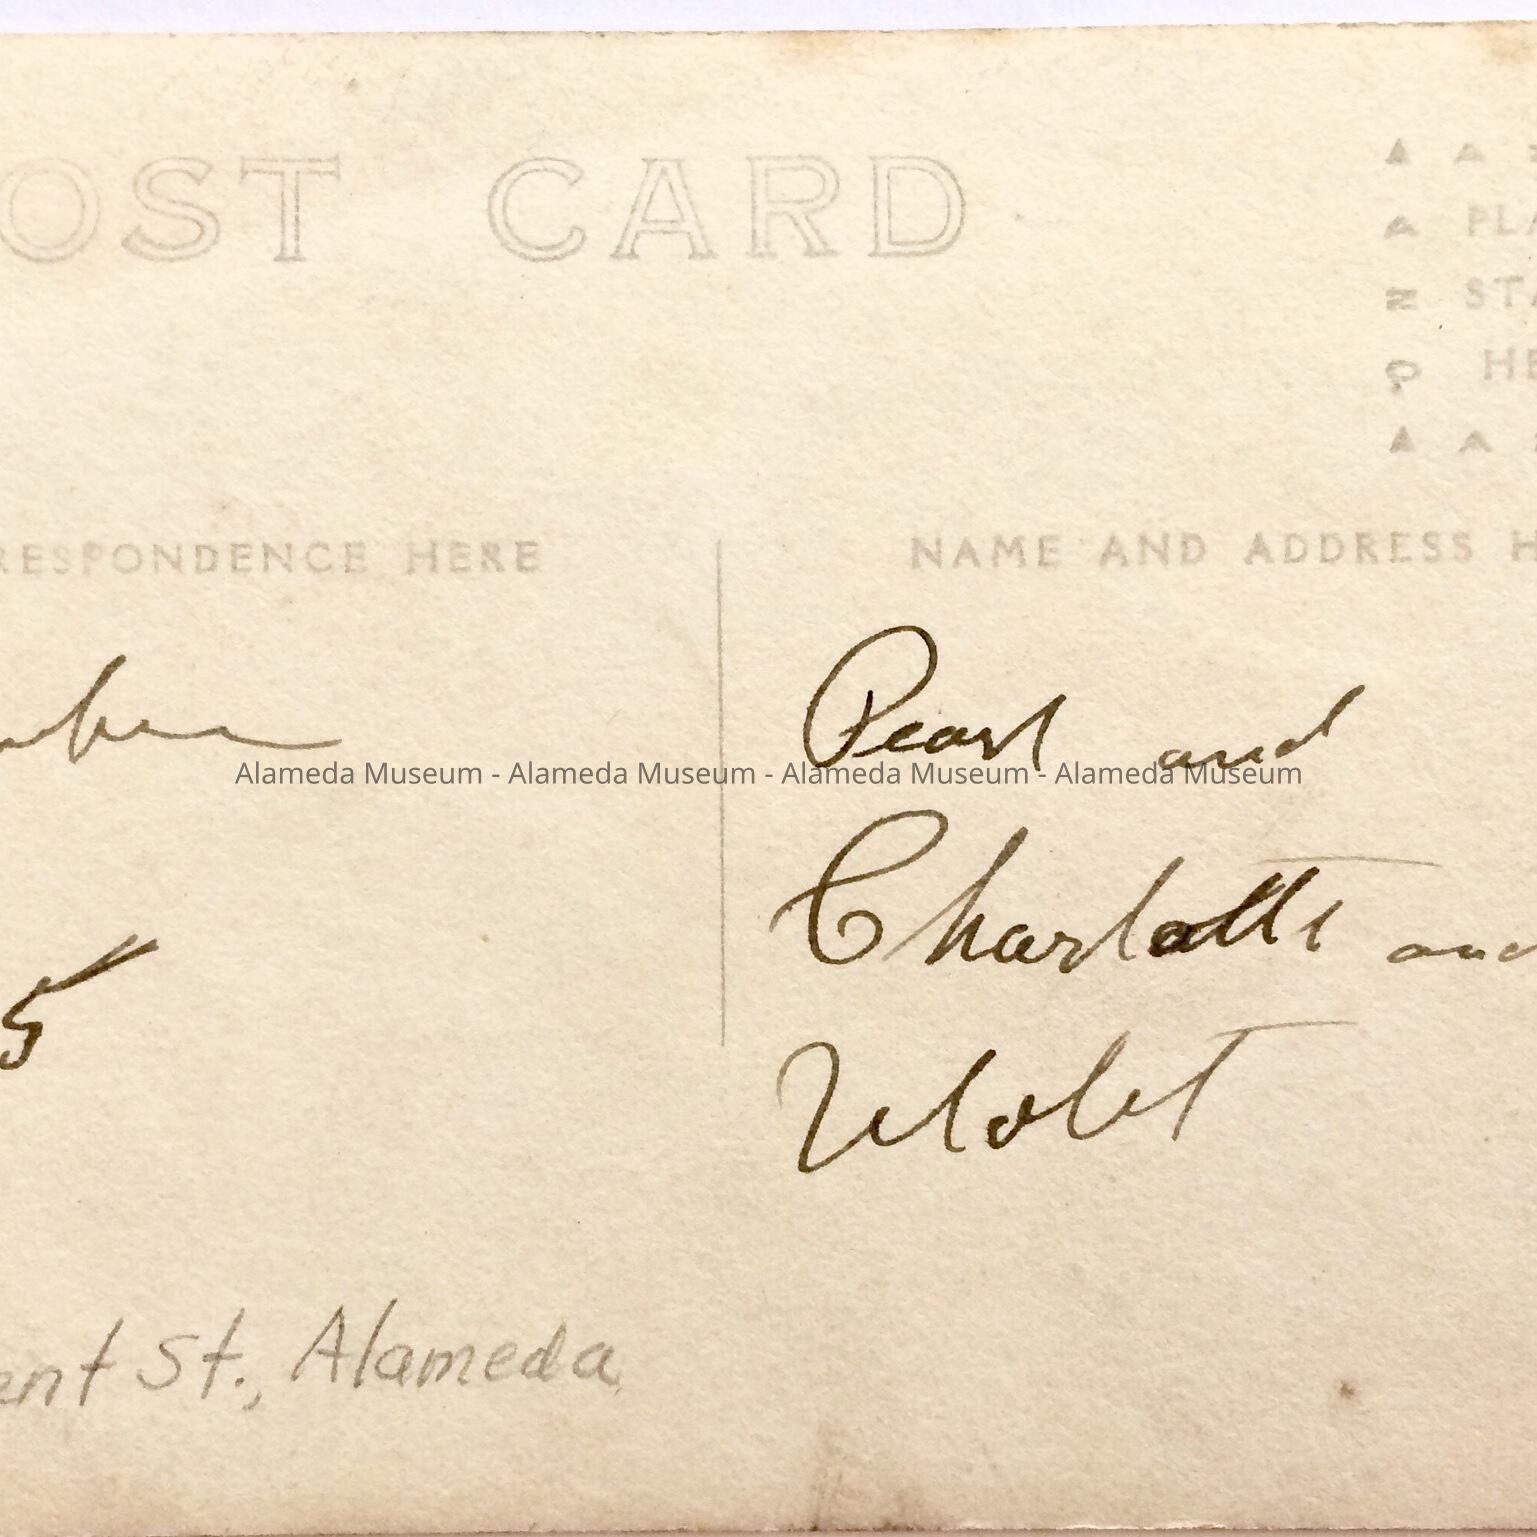 OST CARD
PLA
STA
HE
RESPONDENCE HERE
NAME AND ADDRESS H
Pearl and
Alameda Museum - Alameda Museum - Alameda Museum - Alameda Museum
Charlotte and
Violet
5
ent St., Alameda